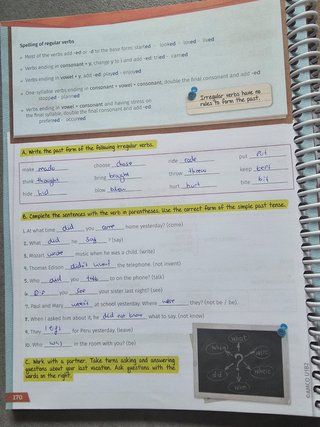 Spelling of regular verbs
Most of the verbs add -ed or -d to the base form: started - looked - loved - lived
Verbs ending in consonant + y, change y to i and add -ed: tried - carried
Verbs ending in vowel + y, add -ed: played - enjoyed
One-syllable verbs ending in consonant + vowel + consonant, double the final consonant and add -ed:
stopped - planned
Verbs ending in vowel + consonant and having stress on
the final syllable, double the final consonant and add -ed:
preferred - occurred
Irregular verbs have no
rules to form the past.
A. Write the past form of the following irregular verbs.
make made choose chose ride rode put
think thought bring throw threw keep
hide hid blow hurt hurt bite bit
B. Complete the sentences with the verb in parentheses. Use the correct form of the simple past tense.
1. At what time did you come home yesterday? (come)
2. What did he say ? (say)
3. Mozart wrote music when he was a child. (write)
4. Thomas Edison didn't invent the telephone. (not invent)
5. Who did you talk to on the phone? (talk)
6. Did you see your sister last night? (see)
7. Paul and Mary weren't at school yesterday. Where were they? (not be / be)
8. When I asked him about it, he did not know what to say. (not know)
9. They left for Peru yesterday. (leave)
10. Who was in the room with you? (be)
C. Work with a partner. Take turns asking and answering
questions about your last vacation. Ask questions with the
cards on the right.
what
when
who
where
did
how
?
170